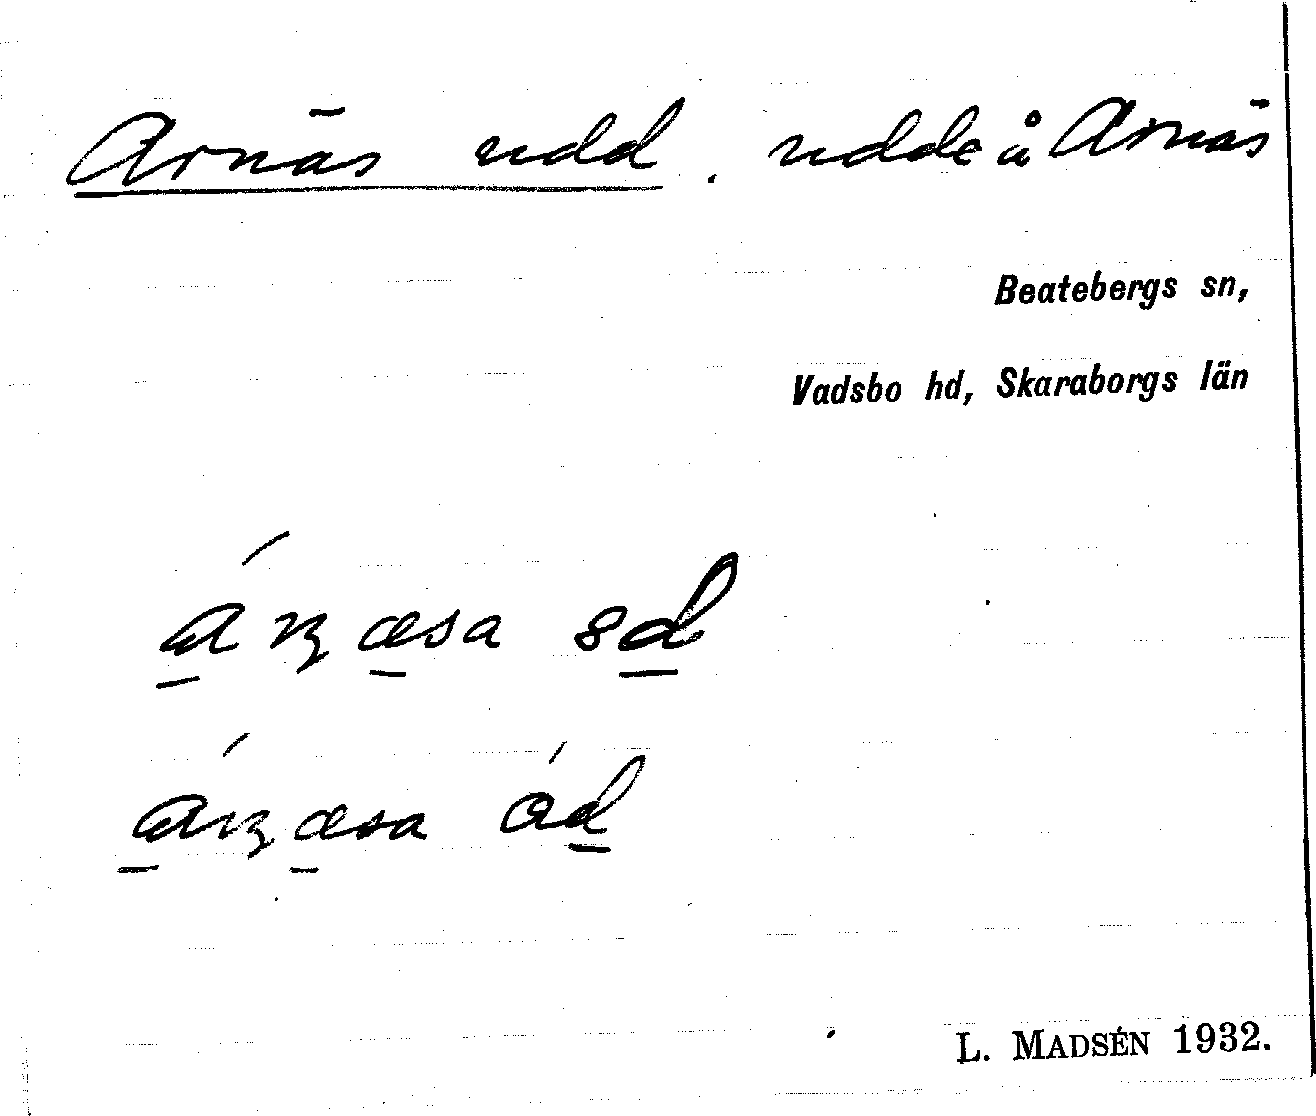 Arnäs udd. udde å Arnäs
Beatebergs sn,
Vadsbo hd, Skaraborgs län
áɳæsa 8d
áɳæsa ód
L. MADSÉN 1932.